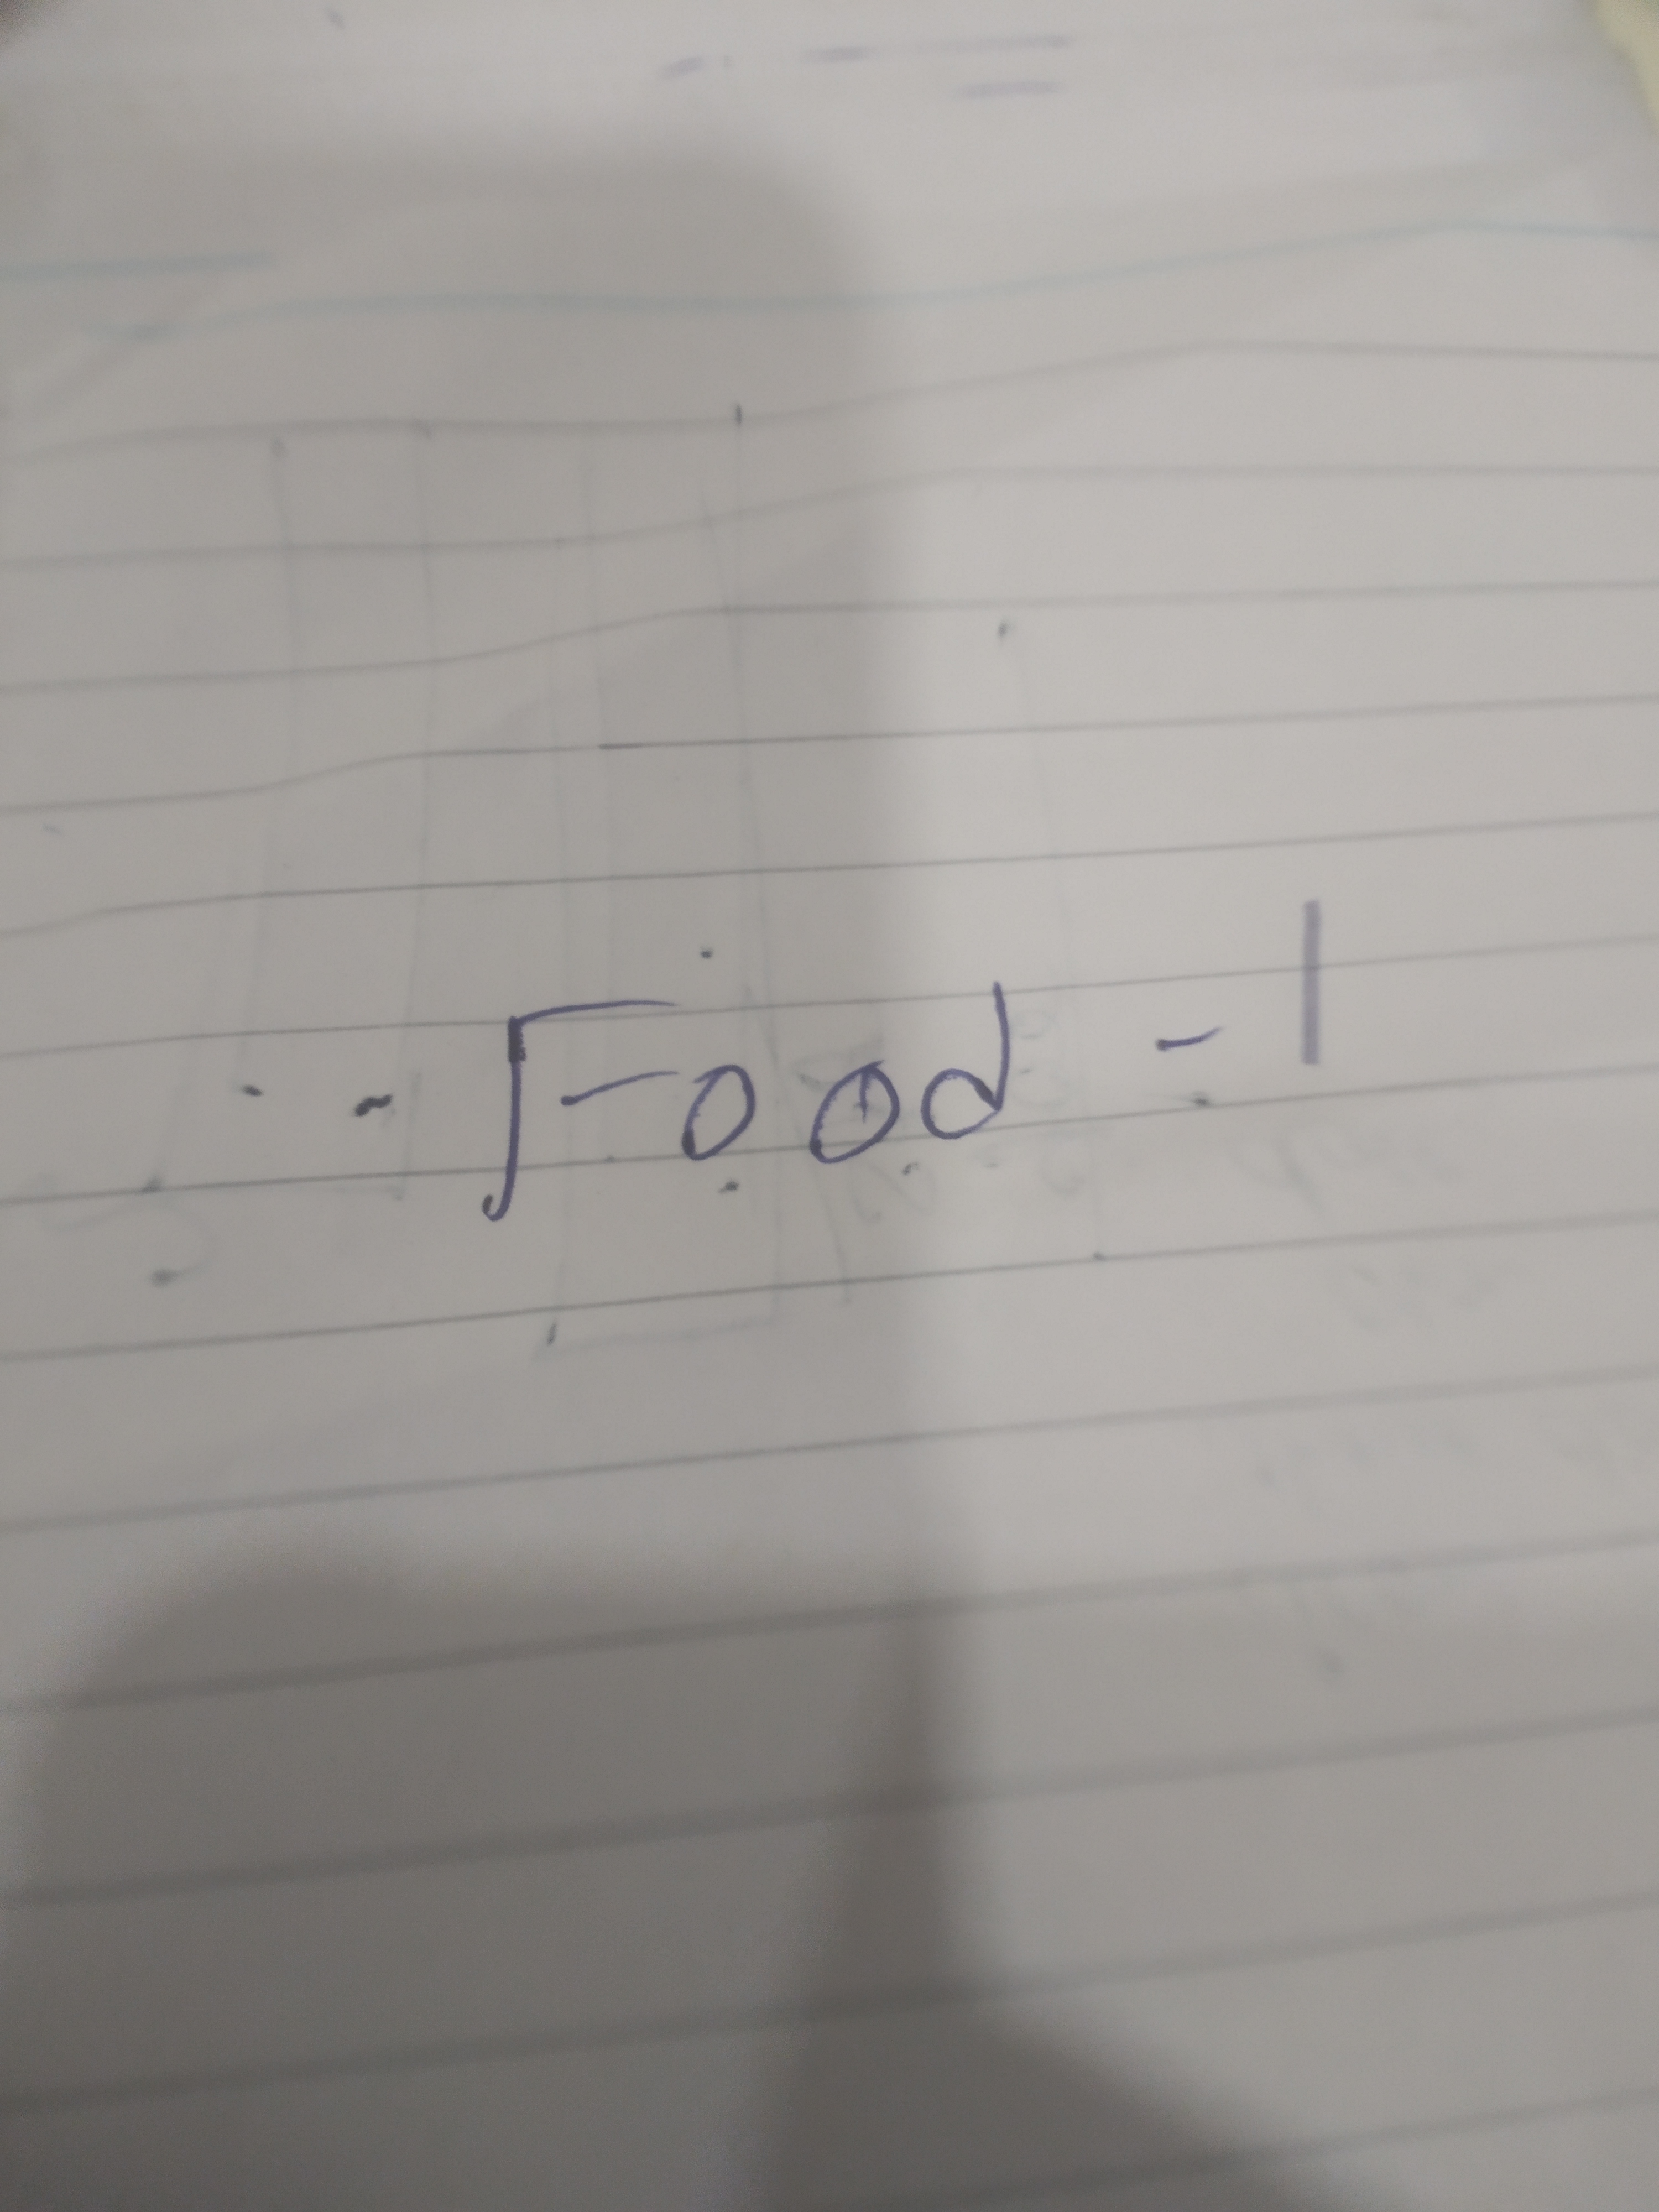 Food - 1